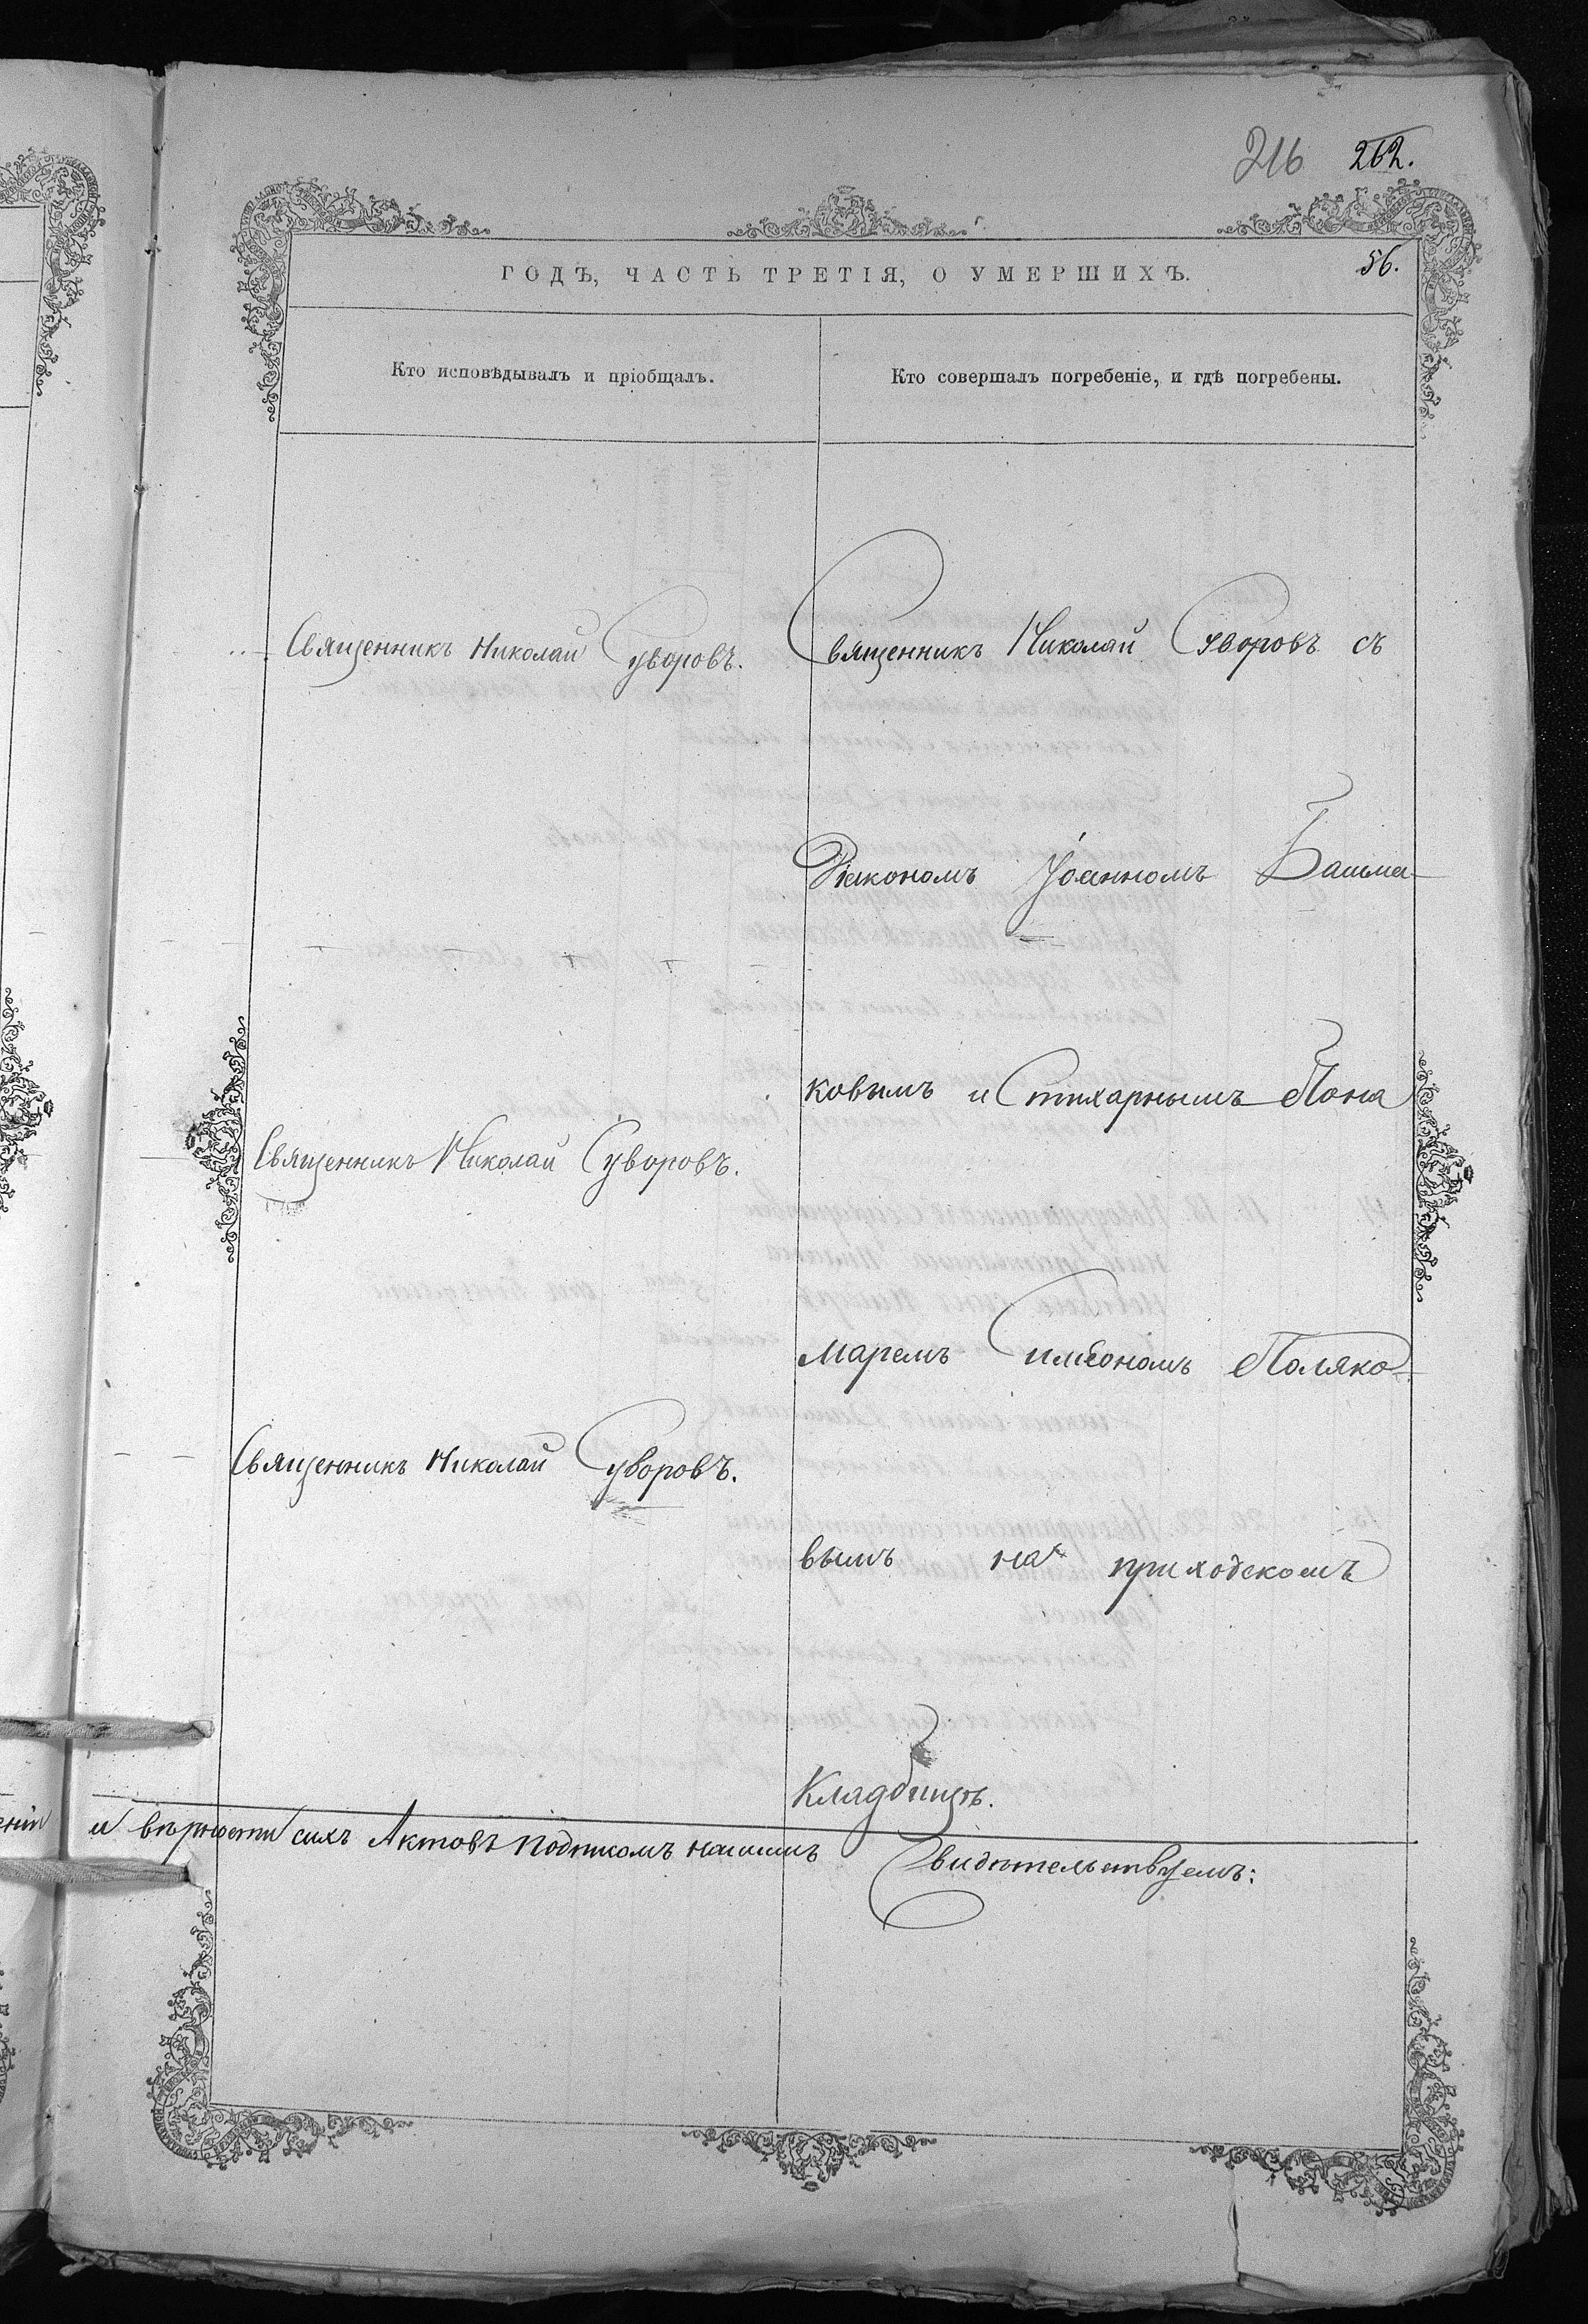 216 262.
ГОДЪ, ЧАСТЬ ТРЕТІЯ, О УМЕРШИХЪ.
56.
Кто исповѣдывалъ и пріобщалъ.
Кто совершалъ погребеніе, и гдѣ погребены.
Священникъ Николай Суворовъ.
Священникъ Николай Суворовъ.
Священникъ Николай Суворовъ.
Священникъ Николай Суворовъ съ
Діакономъ Іоанномъ Башма-
ковымъ и Стихарнымъ Пона
маремъ Симеономъ Поляко-
вымъ на приходскомъ
Кладбищѣ.
и вѣрности сихъ Актовъ подписомъ нашимъ Свидѣтельствуемъ: